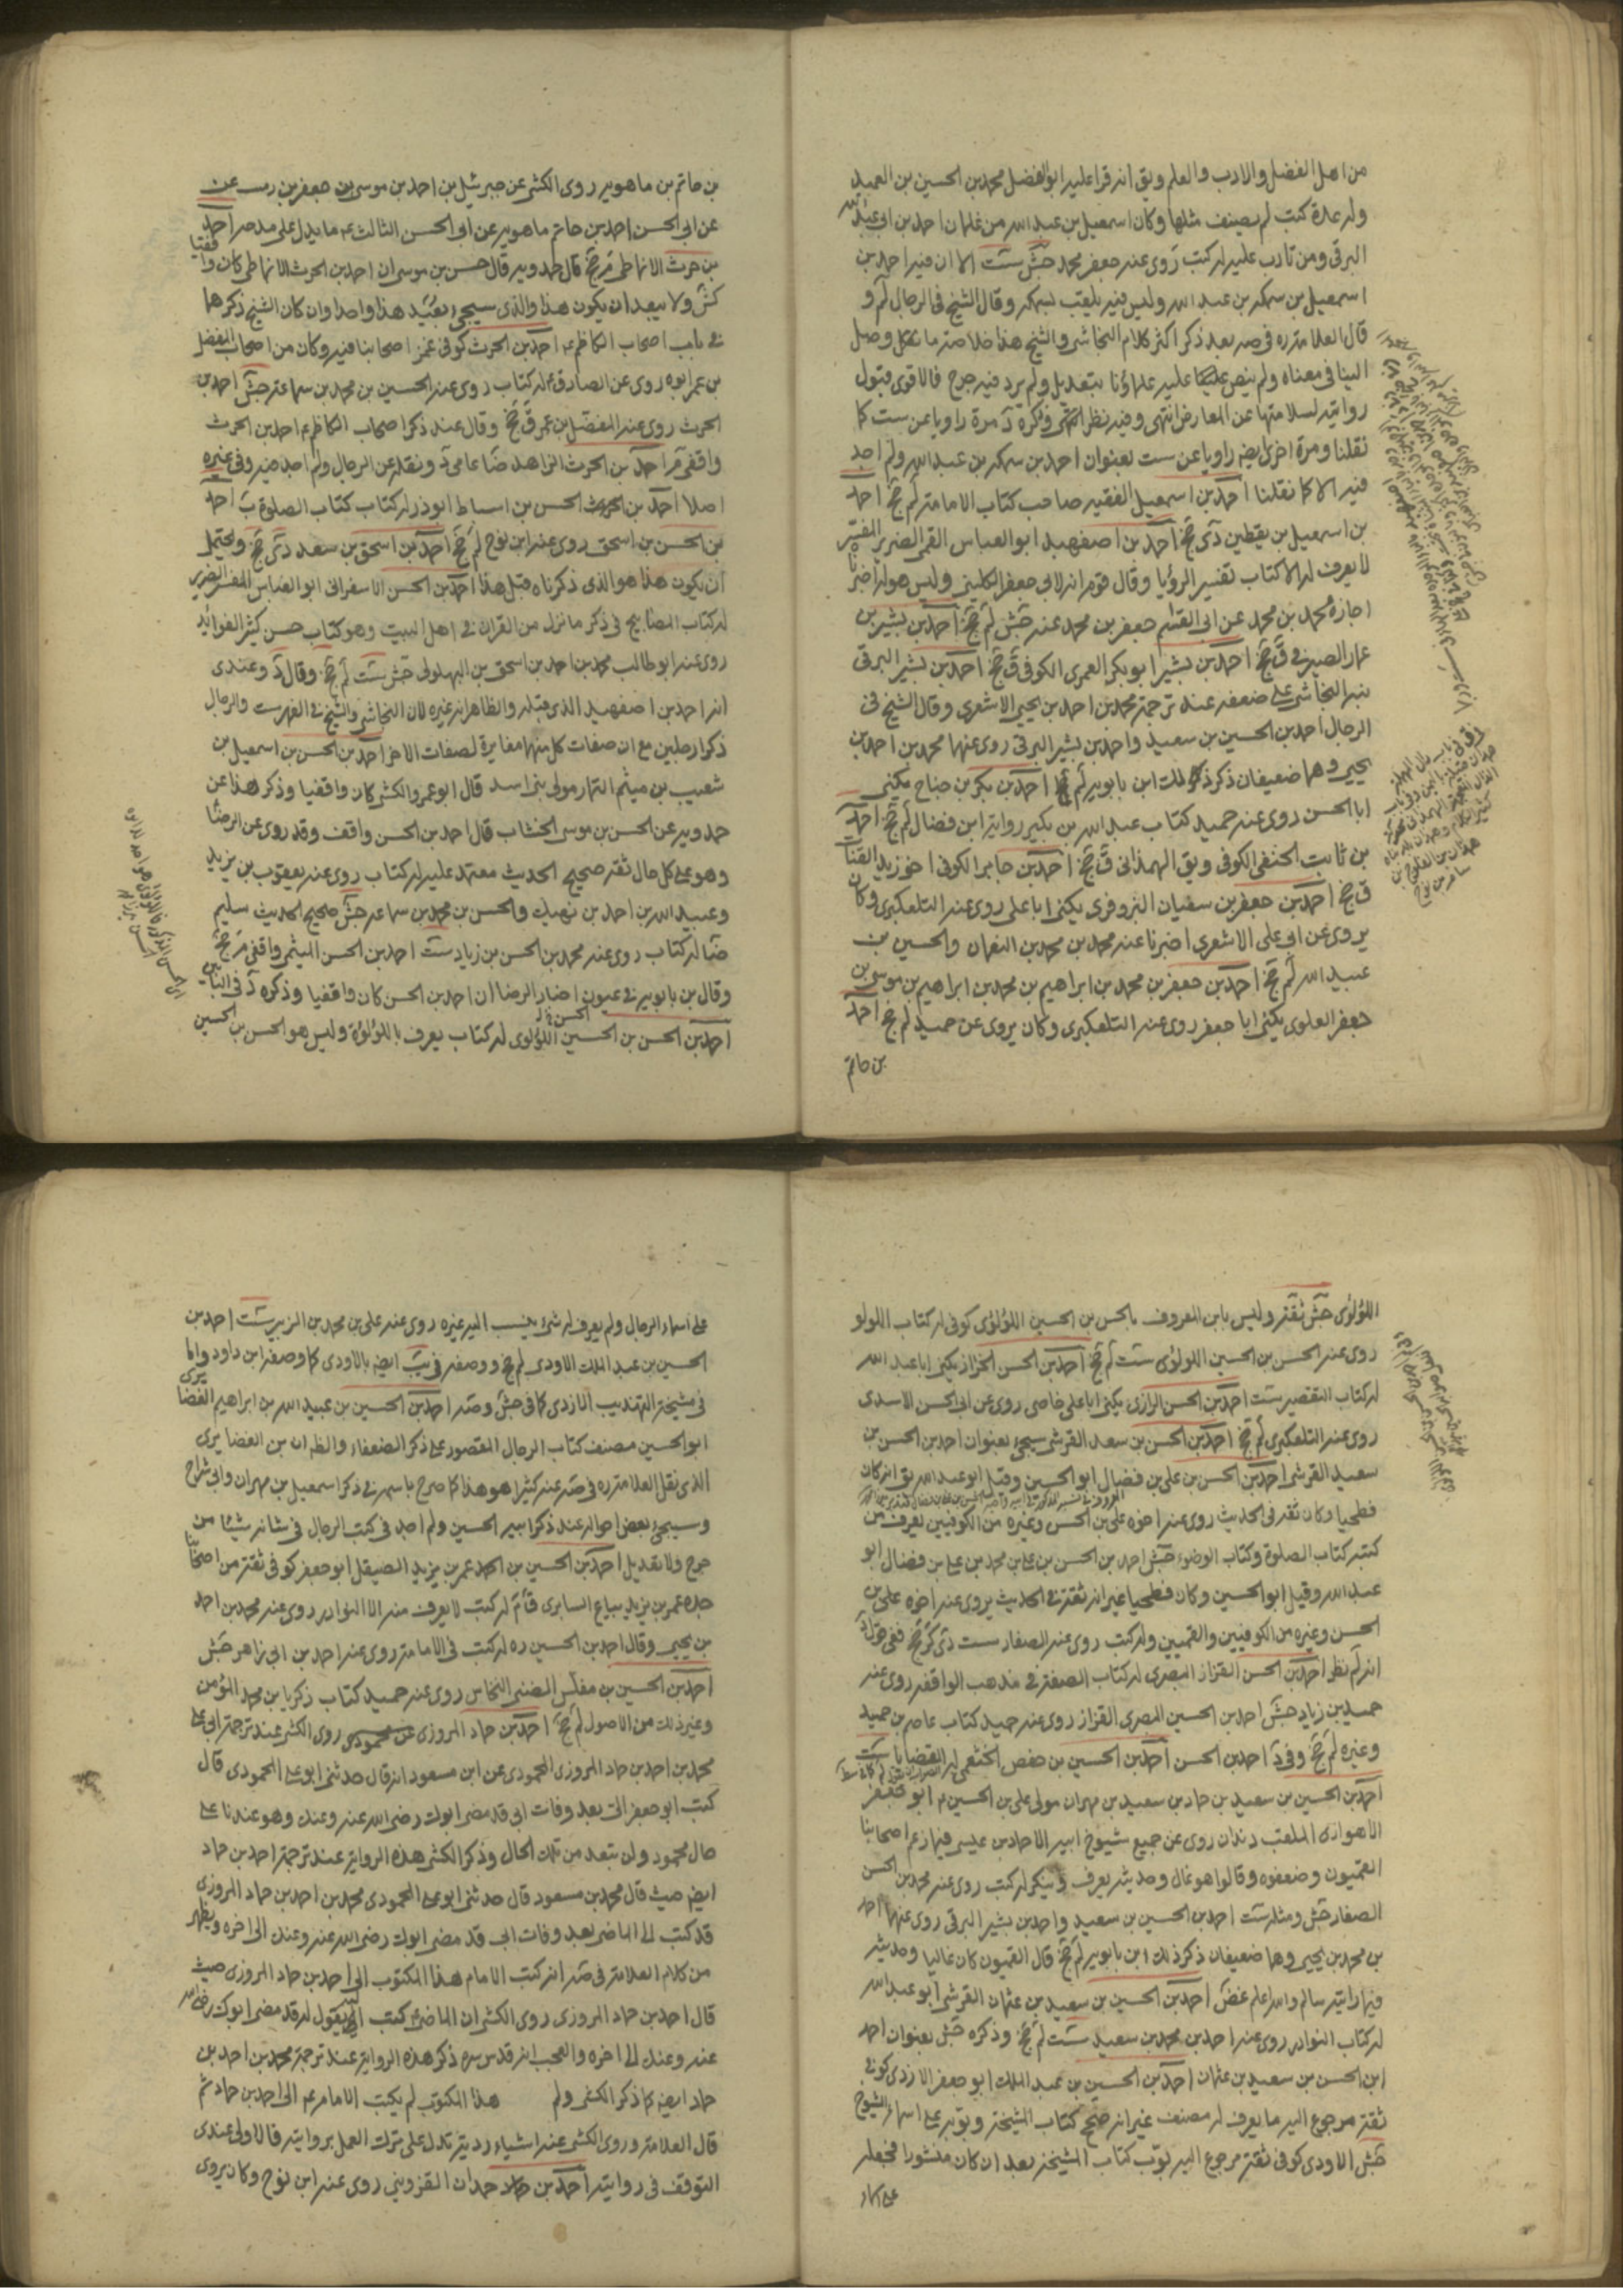 من اهل الفضل والادب والعلم ويق انه قرا عليه ابو الفضل محمد بن الحسين بن العميد
وله عدة كتب لم يصنف مثلها وكان اسمعيل بن عبد الله من غلمان احمد بن ابى عبد الله
البرقى ومن تادب عليه له كتب روى عنه جعفر محمد جش ست الا ان فيه احمد بن
اسمعيل بن سمكه بن عبد الله وليس فيه يلقب بسمكه وقال الشيخ فى الرجال لم و
قال العلامة ره فى صه بعد ذكر اكثر كلام النجاشى والشيخ هذا خلاصة ما تكل وصل
الينا فى معناه ولم ينص عليه علماؤنا بتعديل ولم يرد فيه جرح فالاقوى قبول
روايته لسلامتها عن المعارض انتهى وفيه نظر انتهى وذكره د مرة راويا عن ست كا
نقلنا ومرة اخرى ايضه راويا عن ست بعنوان احمد بن سمكه بن عبد الله ولم اجد
فيه الا كا نقلنا احمد بن اسمعيل الفقيه صاحب كتاب الامامة لم جخ احمد
بن اسمعيل بن يقطين دى جخ احمد بن اصفهبد ابو العباس القمى الضرير المفسر
لا يعرف له الا كتاب تفسير الرؤيا وقال قوم انه لابى جعفر الكلينى وليس هو له اخبرنا
اجازة محمد بن محمد عن ابى القسم جعفر بن محمد عنه جش لم جخ احمد بن بشير بن
عمار الصيرفى ق جخ احمد بن بشير ابو بكر العمرى الكوفى ق جخ احمد بن بشير البرقى
نبه النجاشى على ضعفه عند ترجمة محمد بن احمد بن يحيى الاشعرى وقال الشيخ فى
الرجال احمد بن الحسين بن سعيد واحمد بن بشير البرقى روى عنهما محمد بن احمد بن
يحيى وهما ضعيفان ذكر ذلك ابن بابويه لم جخ احمد بن بكر بن جناح يكنى
ابا الحسن روى عنه حميد كتاب عبد الله بن بكير رواية ابن فضال لم جخ احمد
بن ثابت الحنفى الكوفى ويق الهمدانى ق جخ احمد بن جابر الكوفى اخو زيد القتات
ق جخ احمد بن جعفر بن سفيان البزوفرى يكنى ابا على روى عنه التلعكبرى وكان
يروى عن ابى على الاشعرى اخبرنا عنه محمد بن محمد بن النعمان والحسين بن
عبيد الله لم جخ احمد بن جعفر بن محمد بن ابراهيم بن محمد بن ابراهيم بن موسى بن
جعفر العلوى يكنى ابا جعفر روى عنه التلعكبرى وكان يروى عن حميد لم جخ احمد
بن حاتم
بن حاتم بن ماهويه روى الكشى عن جبرئيل بن احمد بن موسى بن جعفر بن وهب عن
عن ابى الحسن احمد بن حاتم ماهويه عن ابى الحسن الثالث ع ما يدل على مدحه احمد
بن حرث الانماطى م جخ قال حمدويه قال حسن بن موسى ان احمد بن الحرث الانماطى كان واقفيا
كش ولا يبعد ان يكون هذا والذى سيجئ بعيد هذا واحدا وان كان الشيخ ذكرهما
فى باب اصحاب الكاظم ع احمد بن الحرث كوفى غمز اصحابنا فيه وكان من اصحاب المفضل
بن عمر ابوه روى عن الصادق ع له كتاب روى عنه الحسين بن محمد بن سماعة جش احمد بن
الحرث روى عنه المفضل بن عمر ق جخ وقال عند ذكر اصحاب الكاظم ع احمد بن الحرث
واقفى م احمد بن الحرث الزاهد ضا عامى د ونقله عن الرجال ولم اجد فيه وفى غيره
اصلا احمد بن الحرث الحسن بن اسباط ابو ذر له كتاب كتاب الصلوة ب احمد
بن الحسن بن اسحق روى عنه ابن نوح لم جخ احمد بن اسحق بن سعد دى جخ ويحتمل
ان يكون هذا هو الذى ذكرناه قبل هذا احمد بن الحسن الاسفراى ابو العباس المفسر الضرير
له كتاب المصابيح فى ذكر ما نزل من القران فى اهل البيت وهو كتاب حسن كثير الفوائد
روى عنه ابو طالب محمد بن احمد بن اسحق بن البهلول جش ست لم جخ وقال د وعندى
انه احمد بن اصفهبد الذى قبله والظاهر انه غيره لان النجاشى والشيخ فى الفهرست والرجال
ذكوا رجلين مع ان صفات كل منهما مغايرة لصفات الاخر احمد بن الحسن بن اسمعيل بن
شعيب بن ميثم التمار مولى بنى اسد قال ابو عمرو الكشى كان واقفيا وذكر هذا عن
حمدويه عن الحسن بن موسى الخشاب قال احمد بن الحسن واقف وقد روى عن الرضا ع
وهو على كل حال ثقة صحيح الحديث معتمد عليه له كتاب روى عنه يعقوب بن يزيد
وعبيد الله بن احمد بن نهيك والحسن بن محمد بن سماعة جش صحيح الحديث سليم
ضا له كتاب روى عنه محمد بن الحسن بن زياد ست احمد بن الحسن الميثمى واقفى م جخ
وقال بن بابويه فى عيون اخبار الرضا ان احمد بن الحسن كان واقفيا وذكره د فى البابين
احمد بن الحسن بن الحسين اللؤلوى له كتاب يعرف باللؤلؤة وليس هو الحسن بن الحسين
اللؤلؤى جش ثقة وليس بابن المعروف بالحسن بن الحسين اللؤلؤى كوفى له كتاب اللولو
روى عنه الحسن بن الحسين اللولوى ست لم جخ احمد بن الحسن الخزاز يكنى ابا عبد الله
له كتاب التقصير ست احمد بن الحسن الرازى يكنى ابا على خاصى روى عن ابى الحسن الاسدى
روى عنه التلعكبرى لم جخ احمد بن الحسن بن سعد القرشى سيجئ بعنوان احمد بن الحسن بن
سعيد القرشى احمد بن الحسن بن على بن فضال ابو الحسين وقيل ابو عبد الله يق انه كان
فطحيا وكان ثقة فى الحديث روى عنه اخوه على بن الحسن وغيره من الكوفيين يعرف من
كتبه كتاب الصلوة وكتاب الوضوء جش احمد بن الحسن بن على بن محمد بن على بن فضال ابو
عبد الله وقيل ابو الحسين وكان فطحيا غير انه ثقة فى الحديث يروى عنه اخوه على بن
الحسن وغيره من الكوفيين والقميين وله كتب روى عنه الصفار ست دى كر جخ ففى قول د
انه لم نظر احمد بن الحسن القزاز البصرى له كتاب الصفة فى مذهب الواقفة روى عنه
حميد بن زياد جش احمد بن الحسين البصرى القزاز روى عنه حميد كتاب عاصم بن حميد
وغيره لم جخ وفى د احمد بن الحسن احمد بن الحسين بن حفص الخثعمى له القضايا ست
احمد بن الحسين بن سعيد بن حماد بن سعيد بن مهران مولى على بن الحسين ع ابو جعفر
الاهوازى الملقب دندان روى عن جميع شيوخ ابيه الا حماد بن عيسى فيما زعم اصحابنا
القميون وضعفوه وقالوا هو غال وحديثه يعرف وينكر له كتب روى عنه محمد بن الحسن
الصفار جش ومثله ست احمد بن الحسين بن سعيد واحمد بن بشير البرقى روى عنهما احمد
بن محمد بن يحيى وهما ضعيفان ذكر ذلك ابن بابويه لم جخ قال القميون كان غاليا وحديثه
فيما رايته سالم والله اعلم غض احمد بن الحسين بن سعيد بن عثمان القرشى ابو عبد الله
له كتاب النوادر روى عنه احمد بن محمد بن سعيد ست لم جخ وذكره جش بعنوان احمد
ابن الحسن بن سعيد بن عثمان احمد بن الحسين بن عبد الملك ابو جعفر الازدى كوفى
ثقة مرجوع اليه ما يعرف له مصنف غير انه جمع كتاب المشيخة وبوبه على اسماء الشيوخ
جش الاودى كوفى ثقة مرجوع اليه بوّب كتاب المشيخة بعد ان كان منثورا فجعله
على اسماء
على اسماء الرجال ولم يعرف له شئ ينسب اليه غيره روى عنه على بن محمد بن الزبير ست احمد بن
الحسين بن عبد الملك الاودى لم جخ ووصفه فى يب ايضه بالاودى كا وصفه ابن داود واما
فى مشيخة التهذيب الازدى كا فى جش وصه احمد بن الحسين بن عبيد الله بن ابراهيم الغضايرى
ابو الحسين مصنف كتاب الرجال المقصور على ذكر الضعفاء والظ ان بن الغضايرى
الذى نقل العلامة ره فى صه عنه كثيرا هو هذا كا صرح باسمه فى ذكر اسمعيل بن مهران وابى شداخ
وسيجئ بعض احواله عند ذكر ابيه الحسين ولم اجد فى كتب الرجال فى شانه شيئا من
جرح ولا تعديل احمد بن الحسين بن احمد عمر بن يزيد الصيقل ابو جعفر كوفى ثقة من اصحابنا
جده عمر بن يزيد بياع السابرى ق م له كتب لا يعرف منه الا النوادر روى عنه محمد بن احمد
بن يحيى وقال احمد بن الحسين ره له كتب فى الامامة روى عنه احمد بن ابى زاهر جش
احمد بن الحسين بن مفلس الضبى النخاس روى عنه حميد كتاب زكريا بن محمد المؤمن
وغير ذلك من الاصول لم جخ احمد بن حماد المروزى روى الكشى عند ترجمة ابى على
محمد بن احمد بن حماد المروزى المحمودى عن ابن مسعود انه قال حدثنى ابو على المحمودى قال
كتب ابو جعفر الى بعد وفات ابى قد مضى ابوك رضى الله عنه وعنك وهو عندنا على
حال محمود ولن تبعد من تلك الحال وذكر الكشى هذه الرواية عند ترجمة احمد بن حماد
ايضه حيث قال محمد بن مسعود قال حدثنى ابو على المحمودى محمد بن احمد بن حماد المروزى
قد كتب الى الماضى بعد وفات ابى قد مضى ابوك رضى الله عنه وعنك الى اخره ويظهر
من كلام العلامة فى صه انه كتب الامام هذا المكتوب الى احمد بن حماد المروزى حيث
قال احمد بن حماد المروزى روى الكشى ان الماضى ع كتب اليه يقول له قد مضى ابوك رضى الله
عنه وعنك الى اخره والعجب انه قدس سره ذكر هذه الرواية عند ترجمة محمد بن احمد بن
حماد ايضه كا ذكر الكشى ولم هذا المكتوب لم يكتب الامام ع الى احمد بن حماد ثم
قال العلامة وروى الكشى عنه اشياء ردية تدل على ترك العمل بروايته فالاولى عندى
التوقف فى روايته احمد بن حمدان القزوينى روى عنه ابن نوح وكان يروى